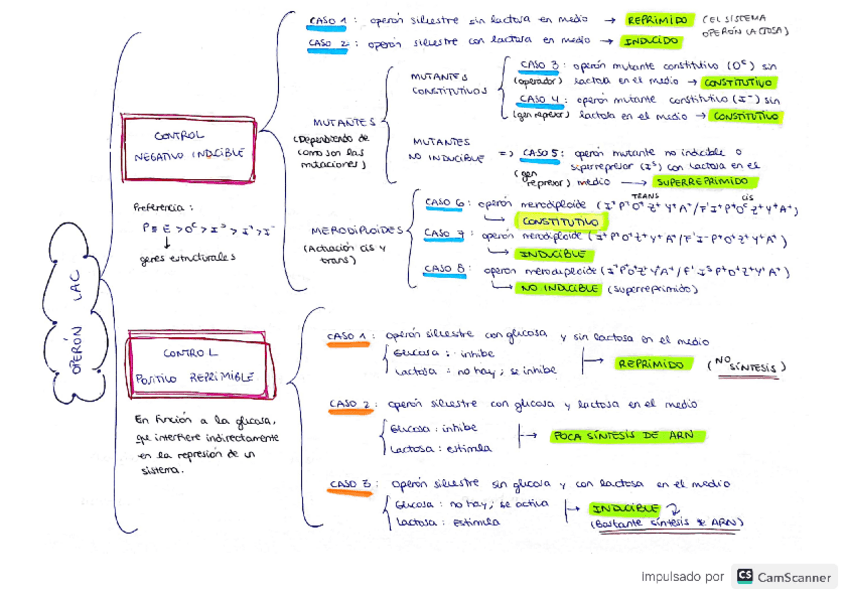 OPERÓN LAC
CONTROL
NEGATIVO INDUCIBLE
Preferencia:
P = E > Oᶜ > Iˢ > I⁺ > I⁻
genes estructurales
CASO 1: operón silvestre sin lactosa en medio → REPRIMIDO (EL SISTEMA
OPERÓN LACTOSA)
CASO 2: operón silvestre con lactosa en medio → INDUCIDO
MUTANTES
(Dependiendo de
como son las
mutaciones)
MUTANTES
CONSTITUTIVOS
CASO 3: operón mutante constitutivo (Oᶜ) sin
(operador) lactosa en el medio → CONSTITUTIVO
CASO 4: operón mutante constitutivo (I⁻) sin
(gen represor) lactosa en el medio → CONSTITUTIVO
MUTANTES
NO INDUCIBLE => CASO 5: operón mutante no inducible o
superrepresor (Iˢ) con lactosa en el
(gen represor) medio → SUPERREPRIMIDO
MERODIPLOIDES
(Actuación cis y
trans)
TRANS cis
CASO 6: operón merodiploide (I⁺P⁺O⁺Z⁺Y⁺A⁺/F'I⁺P⁺OᶜZ⁺Y⁺A⁺)
CONSTITUTIVO
CASO 7: operón merodiploide (I⁺P⁺O⁺Z⁺Y⁺A⁺/F'I⁻P⁺O⁺Z⁺Y⁺A⁺)
INDUCIBLE
CASO 8: operón merodiploide (I⁺P⁺O⁺Z⁺Y⁺A⁺/F'IˢP⁺O⁺Z⁺Y⁺A⁺)
NO INDUCIBLE (superreprimido)
CONTROL
POSITIVO REPRIMIBLE
En función a la glucosa,
que interfiere indirectamente
en la represión de un
sistema.
CASO 1: operón silvestre con glucosa y sin lactosa en el medio
Glucosa: inhibe
Lactosa: no hay; se inhibe
REPRIMIDO (NO SÍNTESIS)
CASO 2: operón silvestre con glucosa y lactosa en el medio
Glucosa: inhibe
Lactosa: estimula
POCA SÍNTESIS DE ARN
CASO 3: operón silvestre sin glucosa y con lactosa en el medio
Glucosa: no hay; se activa
Lactosa: estimula
INDUCIBLE
(Bastante síntesis de ARN)
Impulsado por CS CamScanner